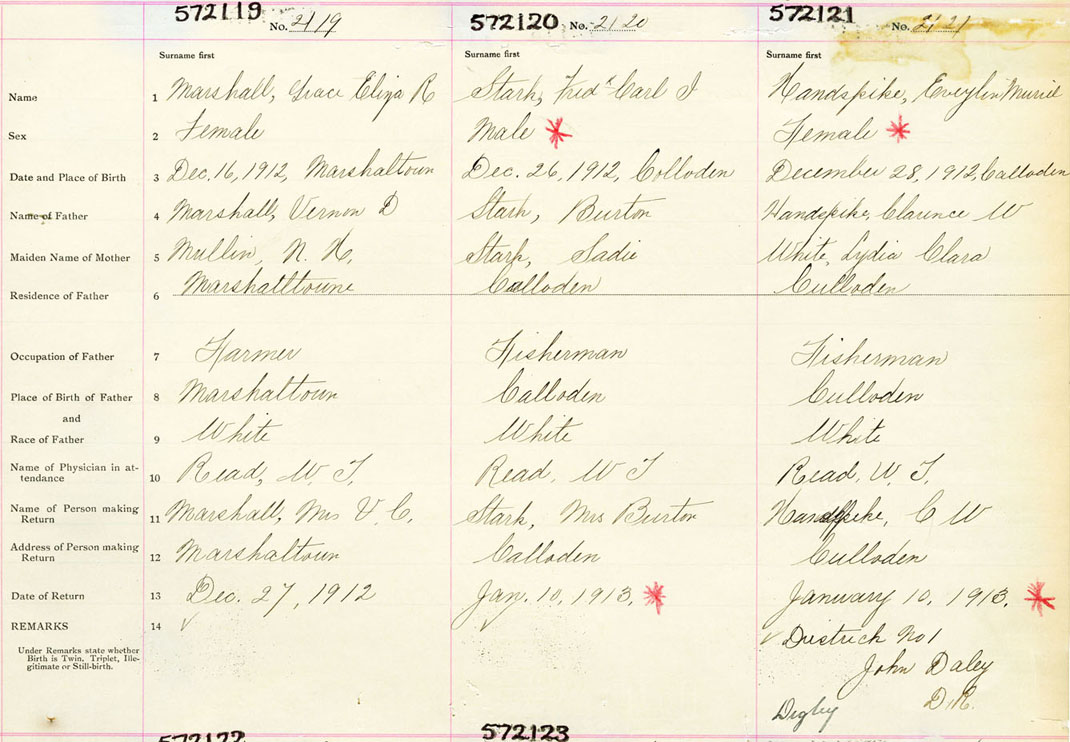 572119 No. 2119 572120 No. 2120 572121 No. 2121
Surname first Surname first Surname first
Name 1 Marshall, Grace Eliza R Stark, Fredk Carl J Handspike, Eveylin Muriel
Sex 2 Female Male Female
Date and Place of Birth 3 Dec. 16, 1912, Marshaltown Dec. 26, 1912, Colloden December 28, 1912, Calloden
Name of Father 4 Marshall, Vernon D Stark, Burton Handspike, Clarence W
Maiden Name of Mother 5 Mullin, N. H, Stark, Sadie White, Lydia Clara
Residence of Father 6 Marshalltowne Culloden Culloden
Occupation of Father 7 Farmer Fisherman Fisherman
Place of Birth of Father 8 Marshaltown Calloden Culloden
and
Race of Father 9 White White White
Name of Physician in at-
tendance 10 Read, W. F. Read, W F Read, W. F.
Name of Person making
Return 11 Marshall, Mrs V. C. Stark, Mrs Burton Handspike, C W
Address of Person making
Return 12 Marshaltown Calloden Culloden
Date of Return 13 Dec. 27, 1912 Jan. 10, 1913. January 10, 1913.
REMARKS 14 Districk No 1
Under Remarks state whether
Birth is Twin, Triplet, Ille-
gitimate or Still-birth.
John Daley
D.R.
Digby
572122 572123